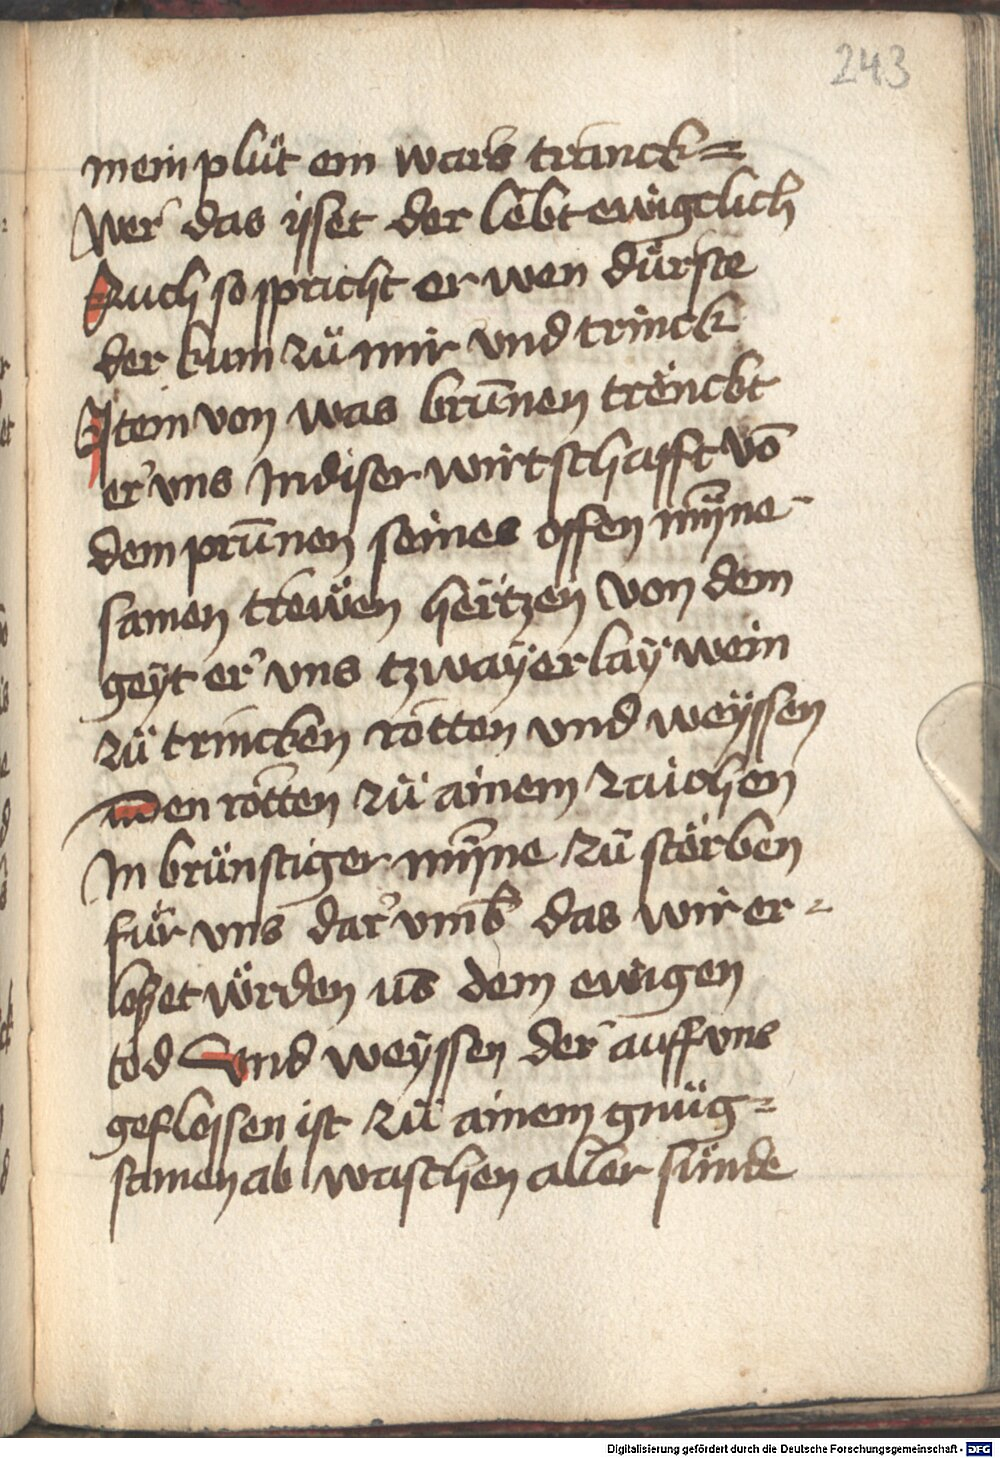 243
mein plůt ein wars tranck=
Wer das ysset der lebt ewigclich
Auch so spricht er wen dürste
der kum zů mir vnd trinck
Item von was brūnen trenckt
er vns In diser wirtschafft vō
dem prūnen seines offen myne-
samen trewen hertzen von dem
geyt er vns tzwayerlay wein
zů trincken rotten vnd weyssen
den rotten zů ainem zaichen
In brünstiger myne zů störben
für vns dar vmb das wir er=
löset würden us dem ewigen
tod Vnd weyssen der auff vns
geflossen ist zů ainem gnüg=
samen ab waschen aller sünde
Digitalisierung gefördert durch die Deutsche Forschungsgemeinschaft - DFG